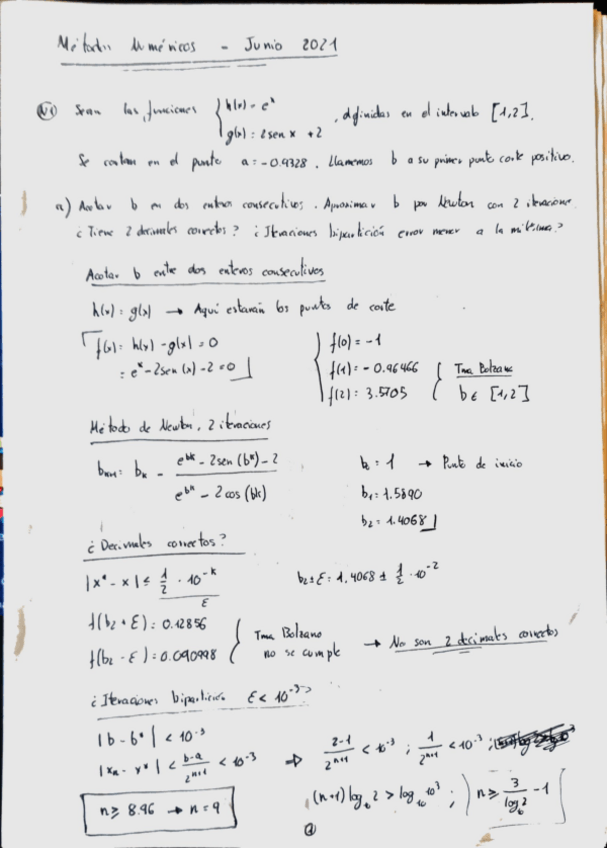 Métodos Numéricos - Junio 2021
N1 Sean las funciones { h(x) = e^x
g(x) = 2 sen x + 2 , definidas en el intervalo [1,2].
Se cortan en el punto a = -0.9328. Llamemos b a su primer punto corte positivo.
a) Acotar b en dos enteros consecutivos. Aproximar b por Newton con 2 iteraciones.
¿Tiene 2 decimales correctos? ¿Iteraciones bipartición error menor a la milésima?
Acotar b entre dos enteros consecutivos
h(x) = g(x) → Aquí estarán los puntos de corte
f(x) = h(x) - g(x) = 0
= e^x - 2sen(x) - 2 = 0
f(0) = -1
f(1) = -0.96466
f(2) = 3.5705
Tma Bolzano
b ∈ [1,2]
Método de Newton, 2 iteraciones
b_{k+1} = b_k - (e^{bk} - 2sen(b^k) - 2) / (e^{bk} - 2cos(bk))
= 1 → Punto de inicio
b_1 = 1.5890
b_2 = 1.4068
¿Decimales correctos?
|x* - x| ≤ 1/2 · 10^{-k}
ε
b_2 ± ε = 1.4068 ± 1/2 · 10^{-2}
f(b_2 + ε) = 0.12856
f(b_2 - ε) = 0.090998
Tma Bolzano
no se cumple
→ No son 2 decimales correctos
¿Iteraciones bipartición ε < 10^{-3}?
|b - b*| < 10^{-3}
|x_n - x*| < (b-a)/2^{n+1} < 10^{-3}
⇒ (2-1)/2^{n+1} < 10^{-3} ; 1/2^{n+1} < 10^{-3} ;
(n+1) log_{10} 2 > log_{10} 10^3 ; n ≥ 3/log_{10} 2 - 1
n ≥ 8.96 → n = 9